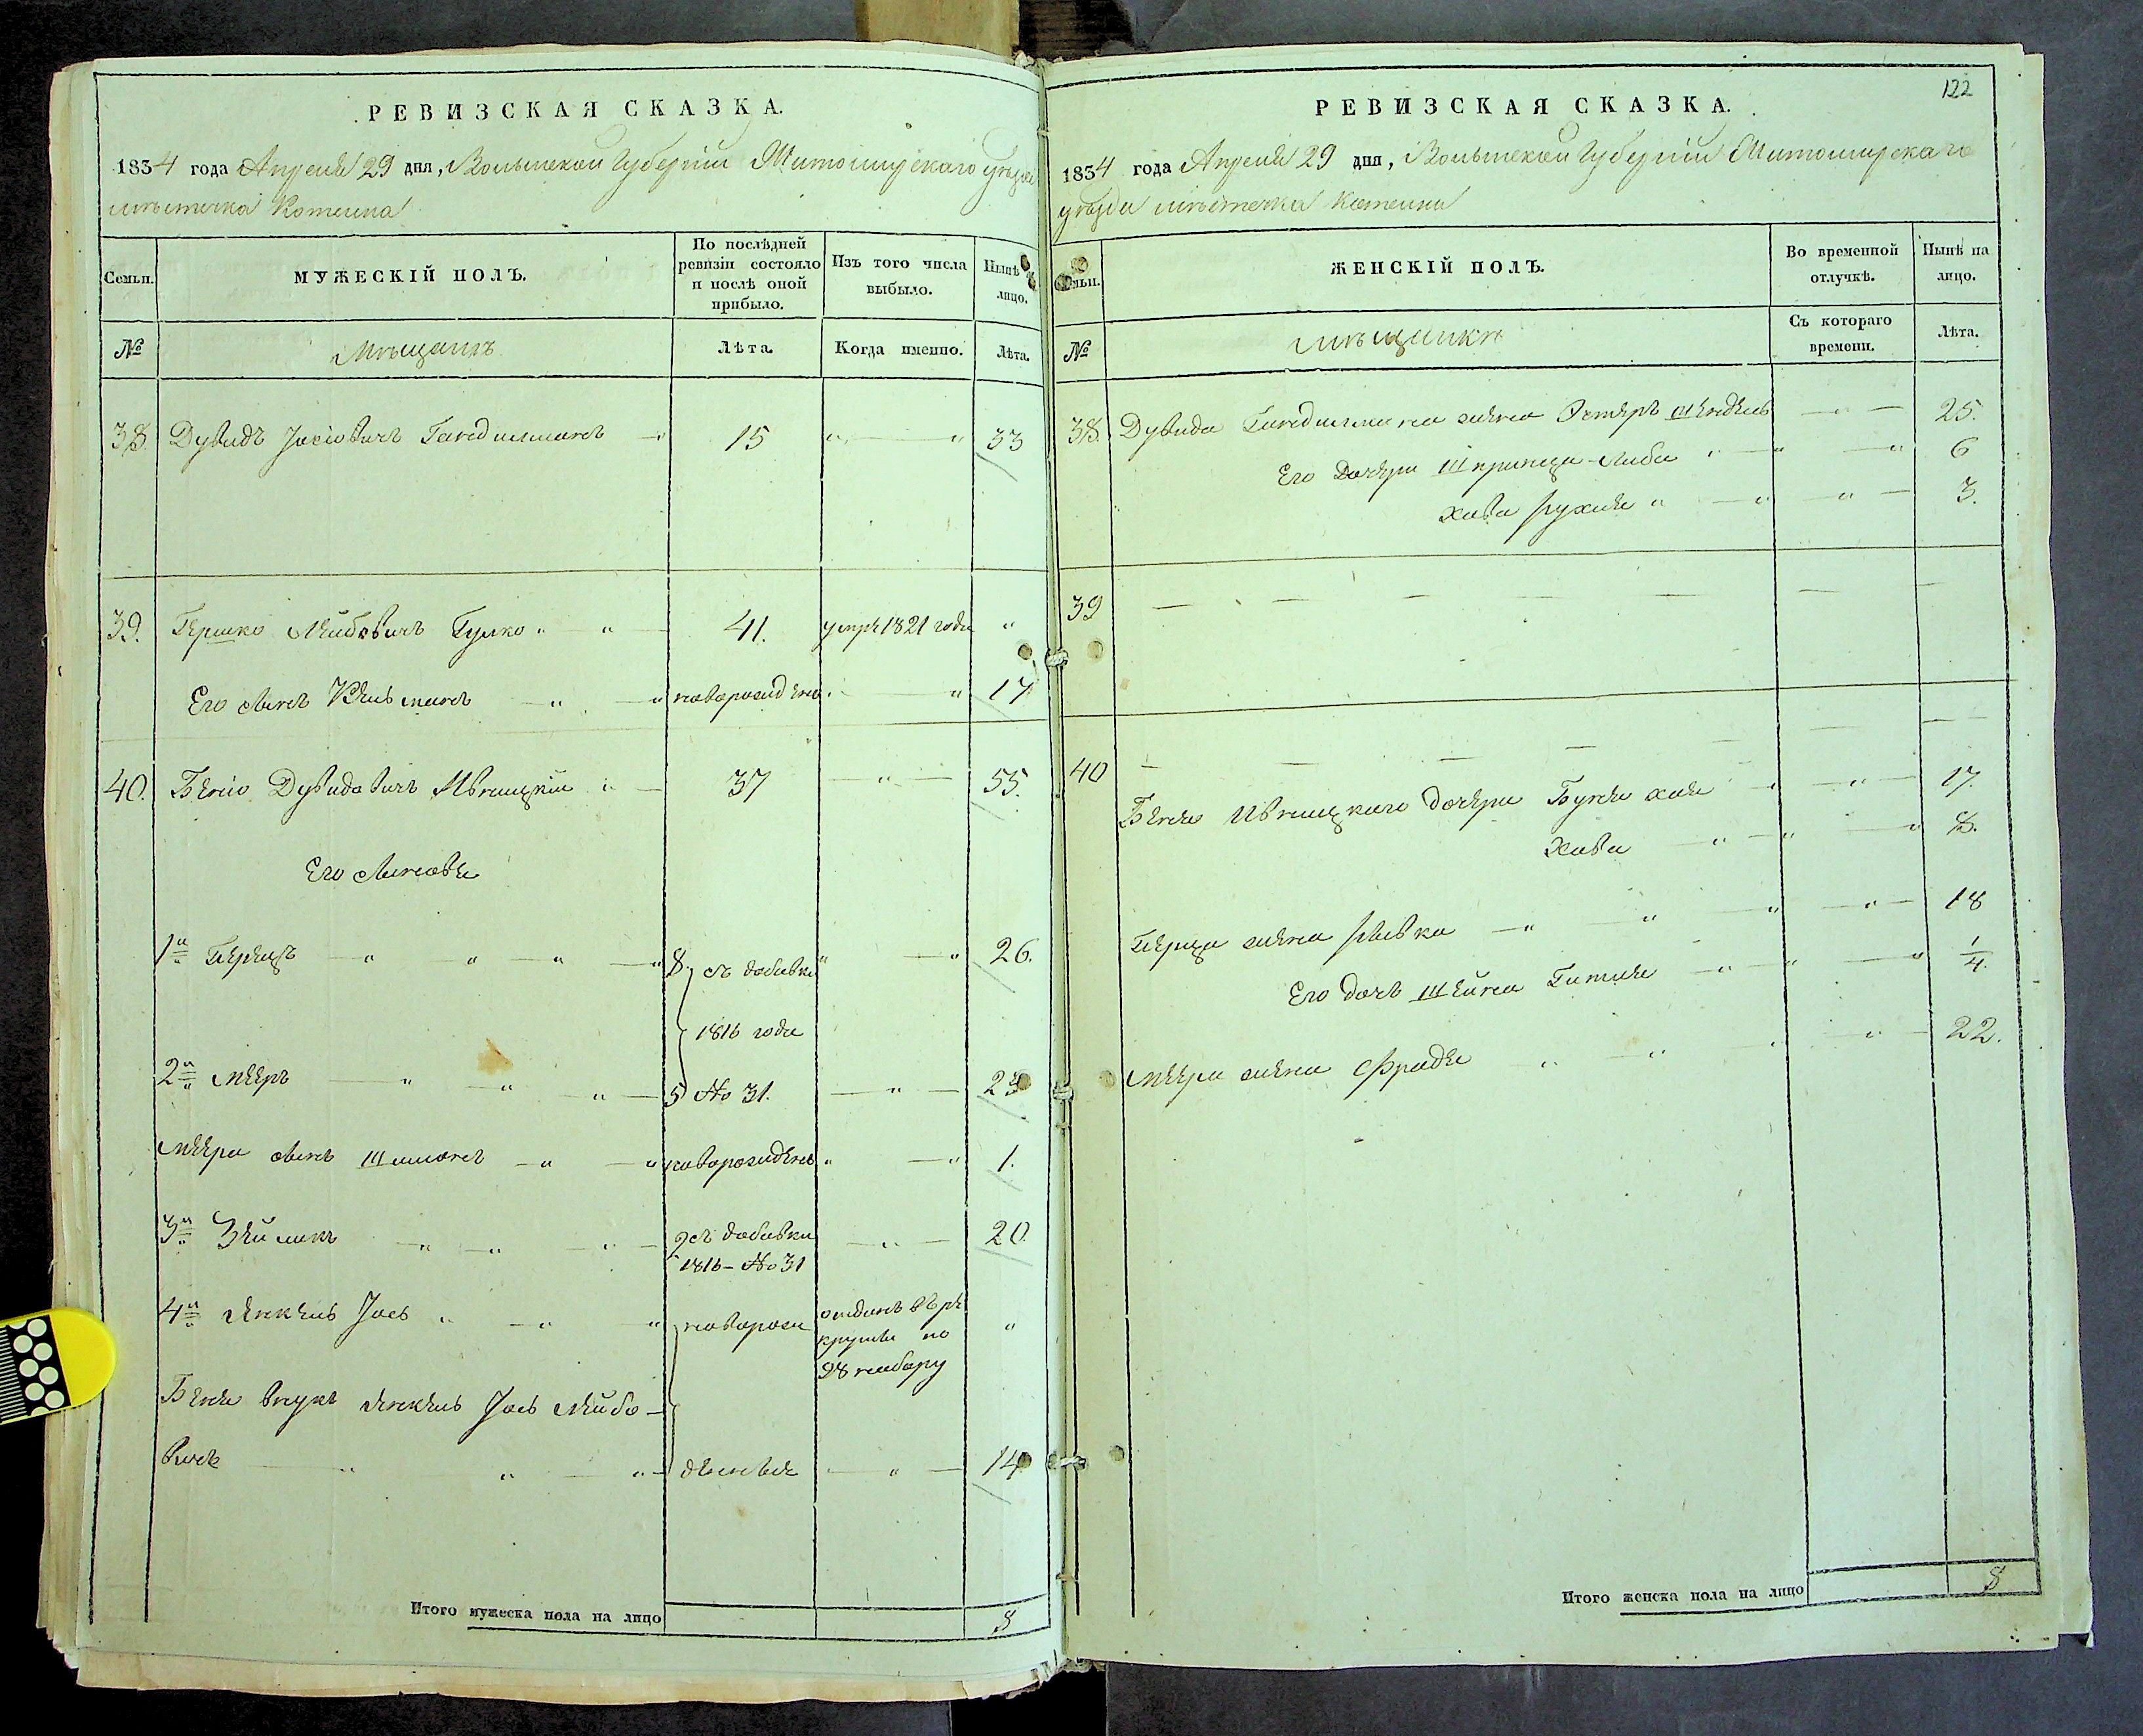 РЕВИЗСКАЯ СКАЗКА.
1834 года Апреля 29 дня, Волынской Губерніи Житомирскаго уѣзда
мѣстечка Котелна
Семьи. МУЖЕСКІЙ ПОЛЪ. По послѣдней ревизіи состояло и послѣ оной прибыло. Изъ того числа выбыло. Нынѣ на лицо.
№ Мѣщанъ Лѣта. Когда именно. Лѣта.
38. Дувидъ Іосіовичъ 15 33
39. Гершко Лейбовичъ Гулко 41. умре 1821 года
Его сынъ Кельманъ новорожденъ 17
40. Беніо Дувидовичъ Ивницкій 37 55.
Его сыновья
1й Герецъ 8 съ добавки 26.
1816 года
2й Мееръ 5 No 31. 23
Меера сынъ Шимонъ новорожденъ 1.
3й Зейликъ 2 съ добавки 20.
1816 - No 31
4й Янкель Іось новорож отданъ въ ре
круты по
28 набору
Беня внукъ Янкель Іось Лейбо-
вичъ денные 14
Итого мужеска пола на лицо 8
122
РЕВИЗСКАЯ СКАЗКА.
1834 года Апреля 29 дня, Волынской Губерніи Житомирскаго
уѣзда мѣстечка Котелни
Семьи. ЖЕНСКІЙ ПОЛЪ. Во временной отлучкѣ. Нынѣ на лицо.
№ мѣщанки Съ котораго времени. Лѣта.
38. Дувида жена Эстеръ Шендель 25.
Его дочери Шпринца-Либа 6
Хава Рухля 3.
39
40
Беня Ивницкаго дочери Буня хая 17.
Хава 8.
Герца жена Ривка 18
Его дочь Шейна Гитля 1/4.
Меера жена Фрадя 22.
Итого женска пола на лицо 8